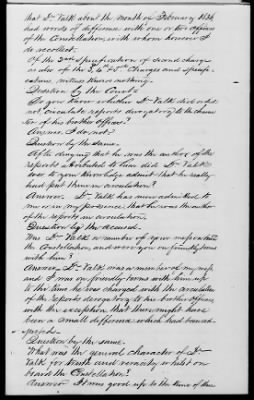 that Dr. Valk about the month of February 1836,
had words of difference with one or two officers
of the Constellation, with whom however I
do not recollect.
Of the 2nd specification of second charge
as also of the 3, 4 & 5th Charges and specifi-
cations, witness knows nothing.
Question by the Court.
Do you know whether Dr. Valk did or did
not circulate reports derogatory to the charac
ter of his brother officers?
Answer. I do not.
Question by the same.
After denying that he was the author of the
reports attributed to him did Dr. Valk
ever to your knowledge admit that he really
had put them in circulation?
Answer. Dr. Valk has never admitted to
me or in my presence that he was the author
of the reports in circulation.
Question by the accused.
Was Dr. Valk a member of your mess in
the Constellation, and were you on friendly terms
with him?
Answer. Dr. Valk was a member of my mess
and I was on friendly terms with him up
to the time he was charged with the circulation
of the reports derogatory to his brother officers,
with the exception that there might have
been a small difference which had caused
Question by the same.
What was the general character of Dr.
Valk for truth and veracity whilst on
board the Constellation?
Answer. It was good up to the time of the